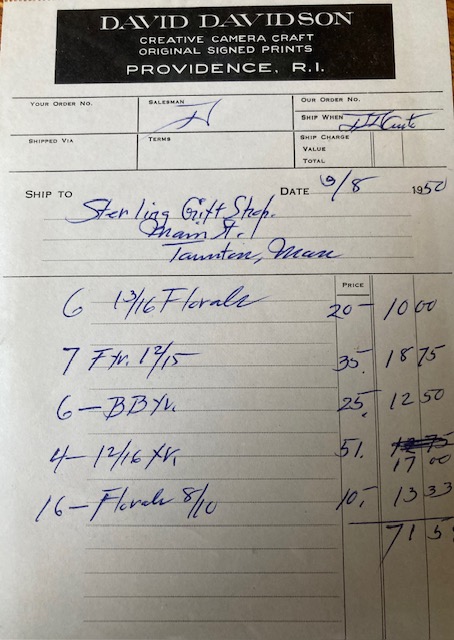 DAVID DAVIDSON
CREATIVE CAMERA CRAFT
ORIGINAL SIGNED PRINTS
PROVIDENCE, R.I.
YOUR ORDER NO.
SALESMAN
OUR ORDER NO.
SHIP WHEN
SHIPPED VIA
TERMS
SHIP CHARGE
VALUE
TOTAL
SHIP TO
DATE 9/8 1950
Sterling Gift Shop.
Main St.
Taunton, Mass
PRICE
6 13/16 Florals 20- 10 00
7 12/15 35. 18 75
6- BB 25. 12 50
4- 12/16 51. 17 00
16- Florals 8/10 10. 13 33
71 5